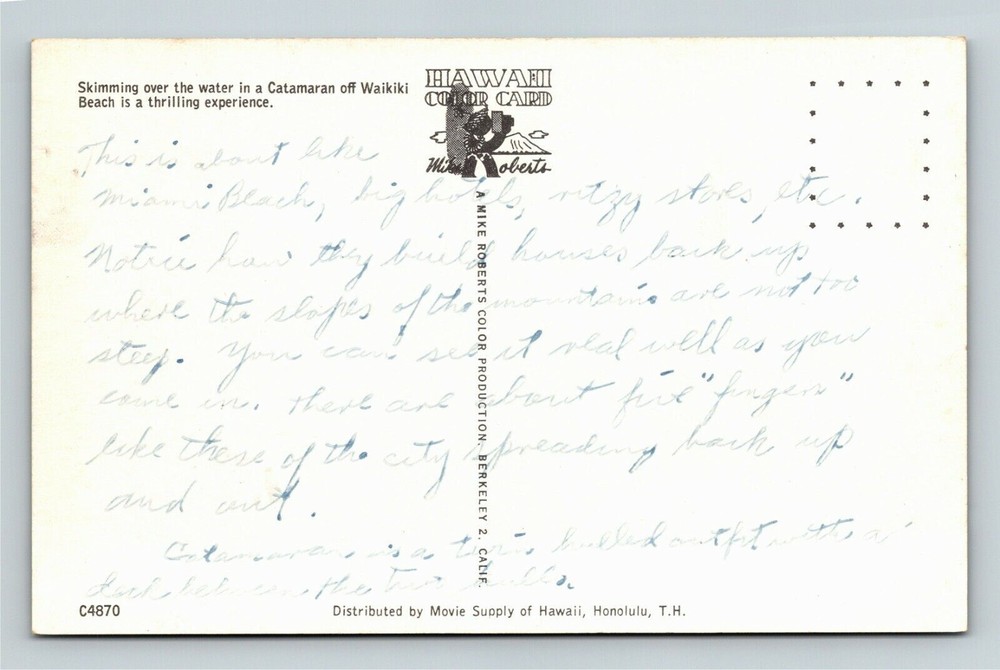 Skimming over the water in a Catamaran off Waikiki
Beach is a thrilling experience.
HAWAII
COLOR CARD
Mike Roberts
A MIKE ROBERTS COLOR PRODUCTION, BERKELEY 2, CALIF.
This is about like
Miami Beach, big hotels, ritzy stores, etc.
Notice how they build houses back up
where the slopes of the mountains are not too
steep. You can see it real well as you
come in. There are about five "fingers"
like these of the city spreading back up
and out.
Catamaran is a twin hulled outfit with a
deck between the two hulls.
C4870
Distributed by Movie Supply of Hawaii, Honolulu, T.H.